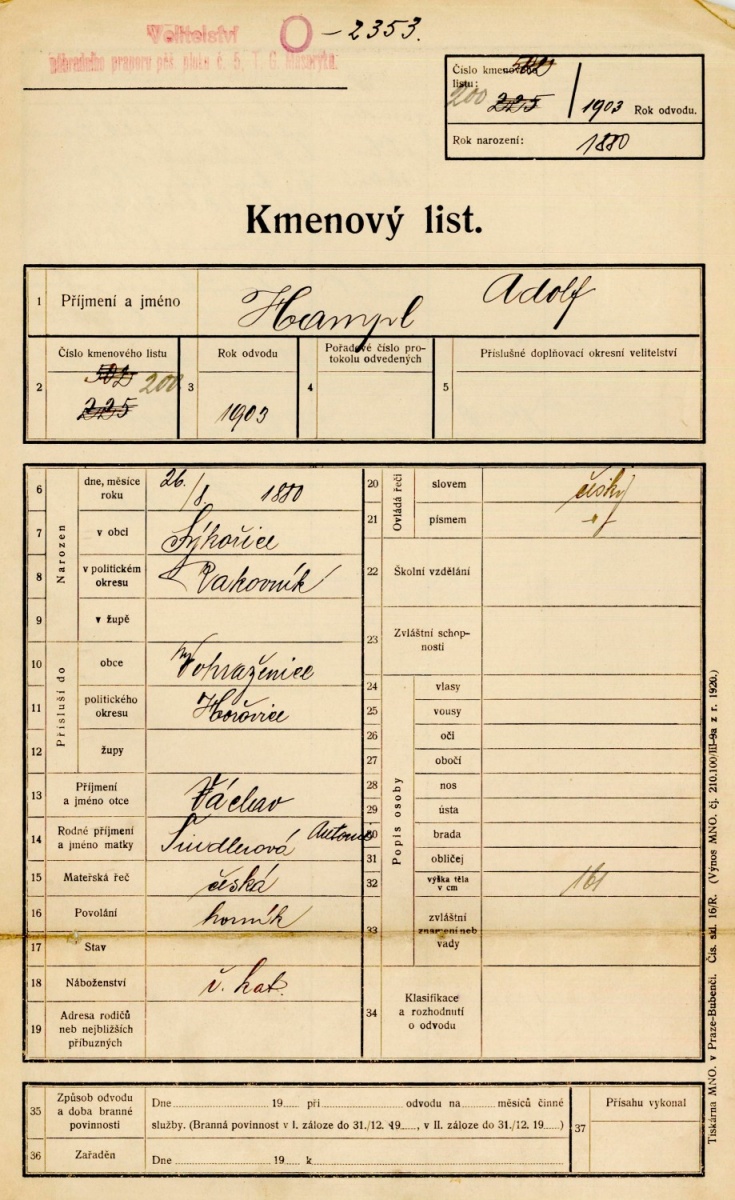 Velitelství O-2353.
náhradního praporu pěš. pluku č. 5. T. G. Masaryka.
Číslo kmenového listu:
200 225 / 1903 Rok odvodu.
Rok narození: 1880
Kmenový list.
1 Příjmení a jméno Hampl Adolf
2 Číslo kmenového listu 502 200 225
3 Rok odvodu 1903
4 Pořadové číslo protokolu odvedených
5 Příslušné doplňovací okresní velitelství
Narozen
6 dne, měsíce roku 26./8. 1880
7 v obci Sýkořice
8 v politickém okresu Rakovník
9 v župě
Přísluší do
10 obce Vohraženice
11 politického okresu Hořovice
12 župy
13 Příjmení a jméno otce Václav
14 Rodné příjmení a jméno matky Antonie
15 Mateřská řeč česká
16 Povolání horník
17 Stav
18 Náboženství ř. kat.
19 Adresa rodičů neb nejbližších příbuzných
Ovládá řeči
20 slovem česky
21 písmem
22 Školní vzdělání
23 Zvláštní schopnosti
Popis osoby
24 vlasy
25 vousy
26 oči
27 obočí
28 nos
29 ústa
30 brada
31 obličej
32 výška těla v cm 161
33 zvláštní znamení neb vady
34 Klasifikace a rozhodnutí o odvodu
35 Způsob odvodu a doba branné povinnosti
Dne 19 při odvodu na měsíců činné
služby. (Branná povinnost v I. záloze do 31./12. 19, v II. záloze do 31./12. 19)
36 Zařaděn
Dne 19 k
37 Přísahu vykonal
Tiskárna MNO. v Praze-Bubenči. Čís. skl. 16/R. (Výnos MNO. čj. 210.100/III-9a z r. 1920.)